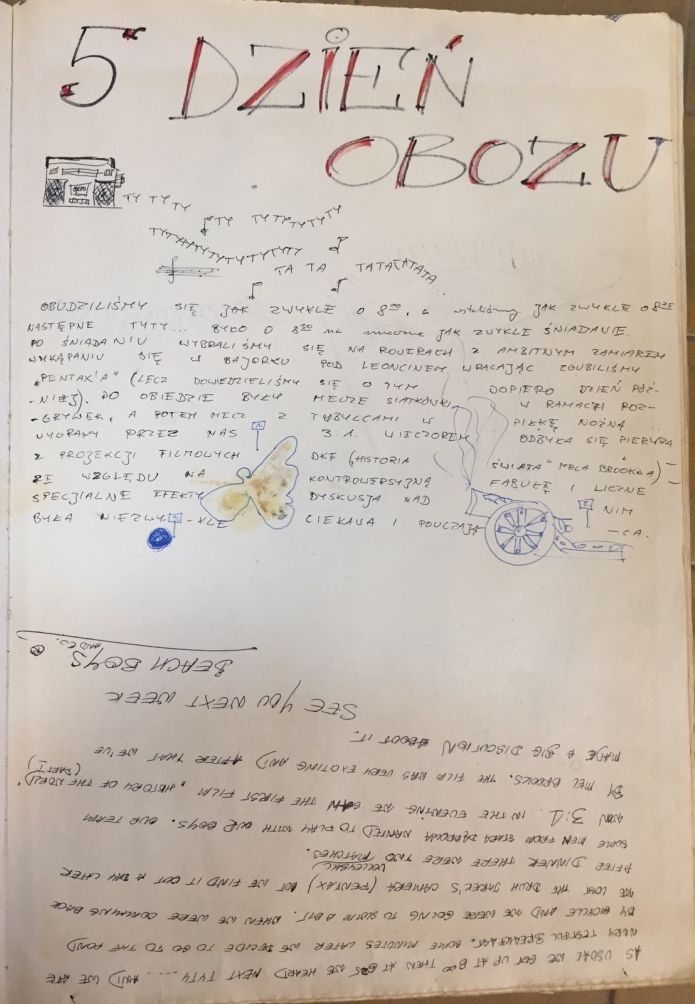 5 DZIEŃ
OBOZU
TY TY TY
TY TYTYTYTYTY
TYTYTYTYTYTYTYTYTYTY
TA TA TATATATATA...
OBUDZILIŚMY SIĘ JAK ZWYKLE O 8⁰⁰, a wstaliśmy JAK ZWYKLE O 8²⁵
NASTĘPNE TYTY... BYŁO O 8³⁰ na smaczne JAK ZWYKLE ŚNIADANIE.
PO ŚNIADANIU WYBRALIŚMY SIĘ NA ROWERACH Z AMBITNYM ZAMIAREM
WYKĄPANIU SIĘ W BAJORKU POD LEONCINEM, WRACAJĄC ZGUBILIŚMY
„PENTAX'A" (LECZ DOWEDZIELIŚMY SIĘ O TYM DOPIERO DZIEŃ PÓŹ-
-NIEJ). PO OBIEDZIE BYŁY MECZE SIATKÓWKI W RAMACH ROZ-
-GRYWEK, A POTEM MECZ Z TUBYLCAMI W PIŁKĘ NOŻNĄ...
WYGRANY PRZEZ NAS 3:1. WIECZOREM ODBYŁA SIĘ PIERWSZA
Z PROJEKCJI FILMOWYCH DKF (HISTORIA ŚWIATA" MELA BROOKSA) -
ZE WZGLĘDU NA KONTROWERSYJNĄ FABUŁĘ I LICZNE
SPECJIALNE EFEKTY DYSKUSJA NAD NIM
BYŁA NIEZWY-KLE CIEKAWA I POUCZAJĄ -CA.
AS USUAL WE GOT UP AT 8⁰⁰ THEN AT WE HEARD NEXT TYTY ..... AND WE ATE
VERY TESTFUL BREAKFAST. SOME MINUTES LATER WE DECIDE TO GO TO THE POND
BY BICYCLE AND WE WERE GOING TO SWIM A BIT. WHEN WE WERE COMMING BACK
WE LOST THE DRUH JACEK'S CAMERA (PENTAX) BUT WE FIND IT OUT A DAY LATER
AFTER DINNER THERE WERE TWO VOLLEYBALL MATCHES.
SOME MEN FROM STARA DĄBROWA WANTED TO PLAY WITH OUR BOYS. OUR TEAM
WON 3:1. IN THE EVENING WE SAW THE FIRST FILM „HISTORY OF THE WORLD" (PART I)
BY MEL BROOKS. THE FILM WAS VERY EXCITING AND AFTER THAT WE'VE
MADE A BIG DISCUTION ABOUT IT.
SEE YOU NEXT WEEK
BEACH BOYS AND CO. ®